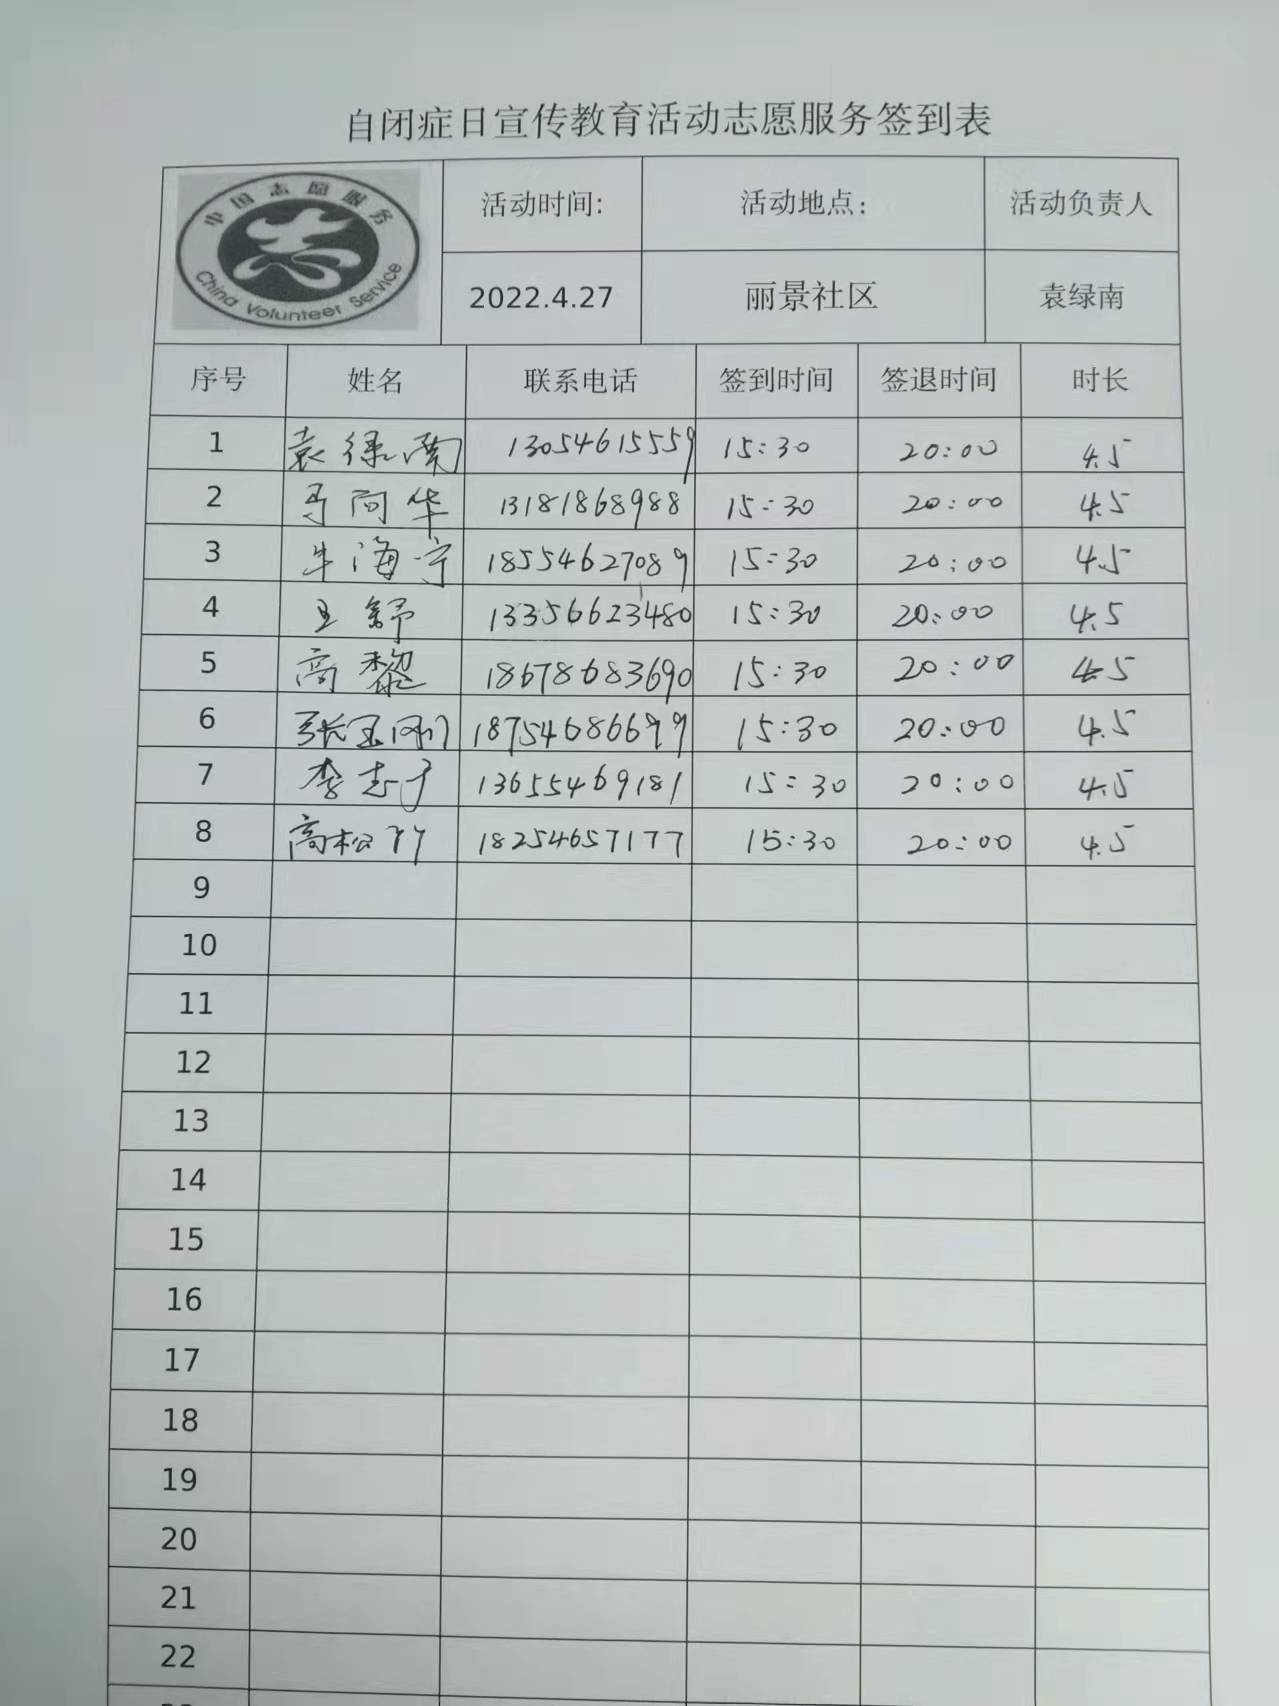 自闭症日宣传教育活动志愿服务签到表
中国志愿服务
China Volunteer Service
活动时间: 活动地点: 活动负责人
2022.4.27 丽景社区 袁绿南
序号 姓名 联系电话 签到时间 签退时间 时长
1 袁绿南 13054615559 15:30 20:00 4.5
2 13181868988 15:30 20:00 4.5
3 牛海宁 18554627089 15:30 20:00 4.5
4 王舒 13356623480 15:30 20:00 4.5
5 高黎 18678683690 15:30 20:00 4.5
6 张玉刚 18754686699 15:30 20:00 4.5
7 李志 13655469181 15:30 20:00 4.5
8 高松 18254657177 15:30 20:00 4.5
9
10
11
12
13
14
15
16
17
18
19
20
21
22